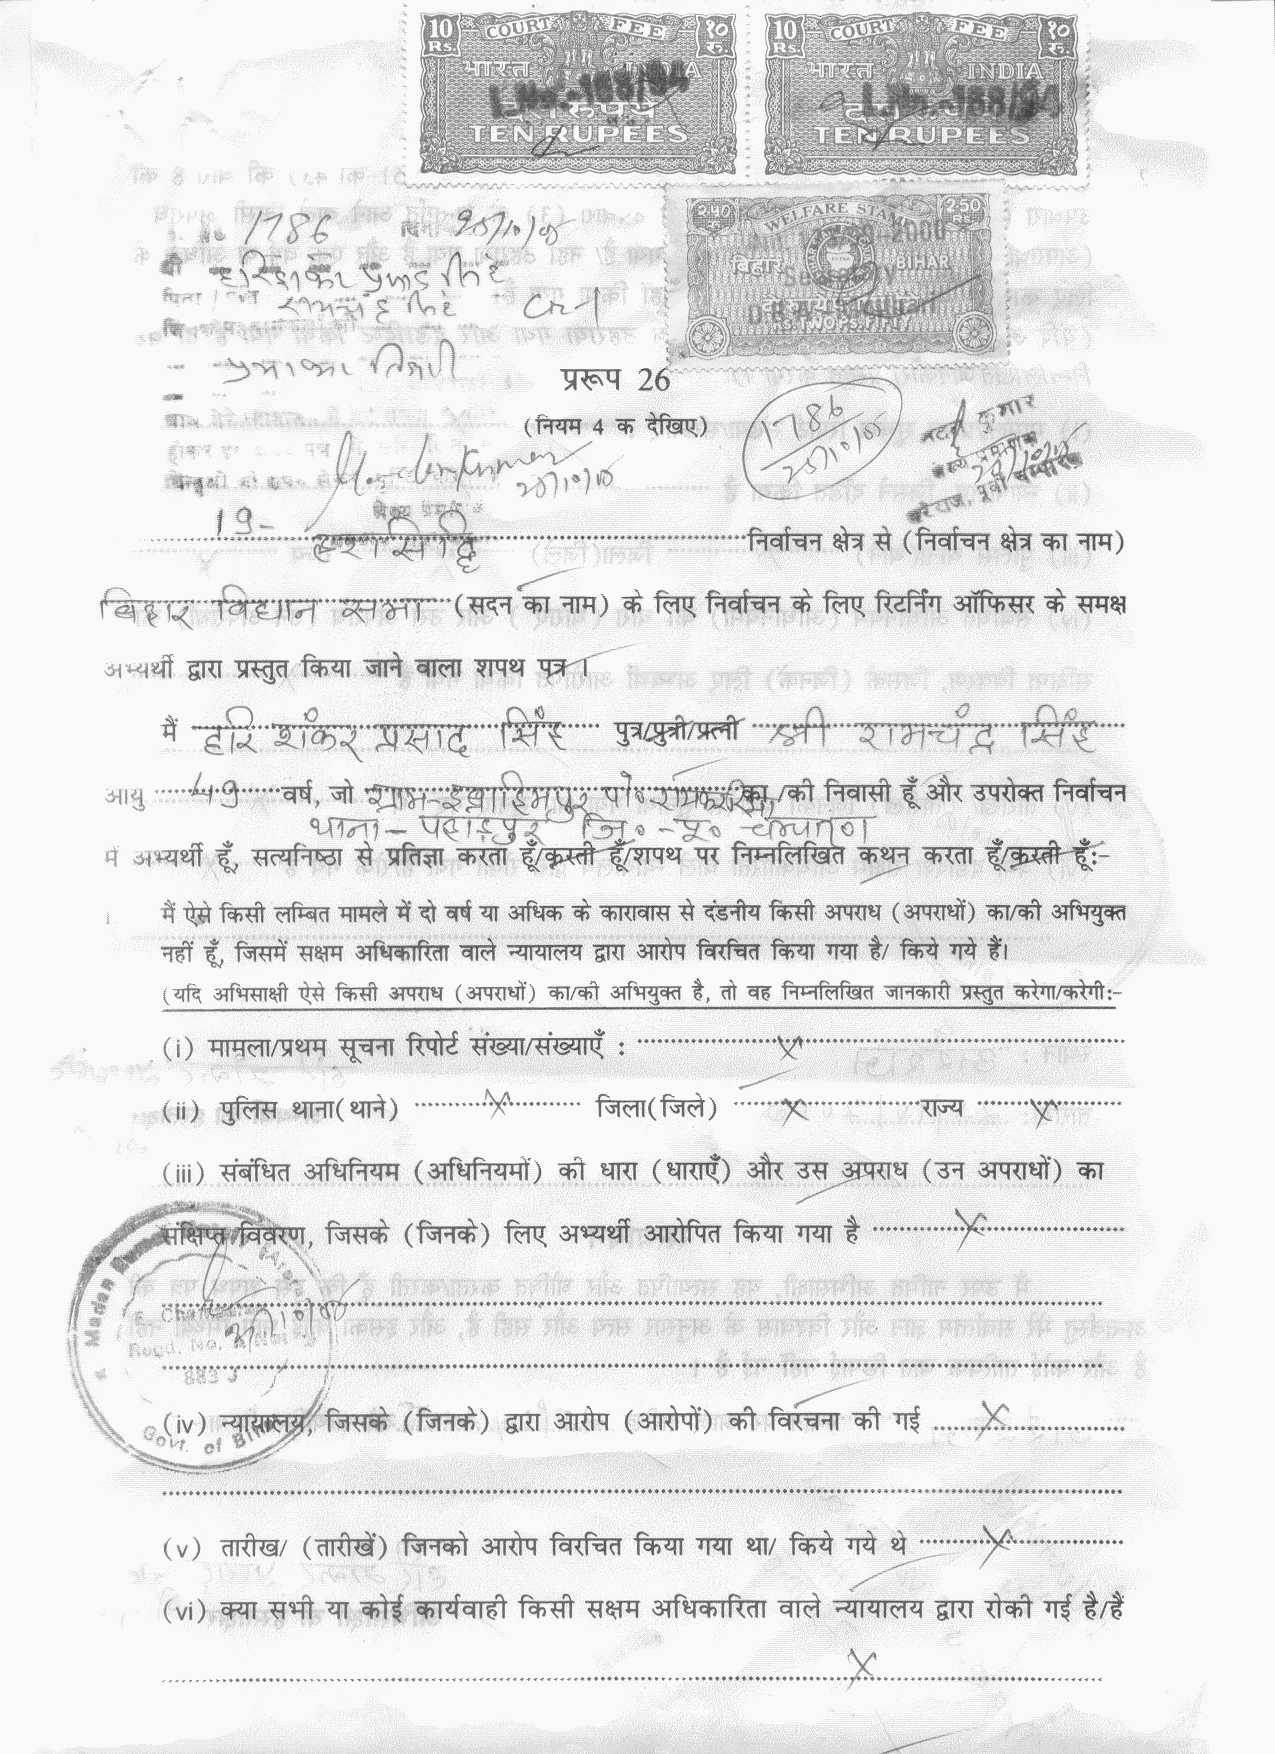 10 Rs. COURT FEE १० रु.
भारत INDIA
L.No.-188/94
दस रुपये
TEN RUPEES
10 Rs. COURT FEE १० रु.
भारत INDIA
L.No.-188/94
TEN RUPEES
2.50 WELFARE STAMP 2.50
बिहार BIHAR
RS. TWO PS. FIFTY
1786 25/10/05
श्री हरिशंकर प्रसाद सिंह
पिता रामचंद्र सिंह
प्ररूप 26
(नियम 4 क देखिए)
1786
25/10/05
25/10/05
19-
हरसिद्धि निर्वाचन क्षेत्र से (निर्वाचन क्षेत्र का नाम)
बिहार विधान सभा (सदन का नाम) के लिए निर्वाचन के लिए रिटर्निंग ऑफिसर के समक्ष
अभ्यर्थी द्वारा प्रस्तुत किया जाने वाला शपथ पत्र ।
मैं हरि शंकर प्रसाद सिंह पुत्र/पुत्री/पत्नी श्री रामचंद्र सिंह
आयु 49 वर्ष, जो ग्राम-इब्राहिमपुर पो० का/की निवासी हूँ और उपरोक्त निर्वाचन
थाना- पहाड़पुर जि०-पू० चम्पारण
में अभ्यर्थी हूँ, सत्यनिष्ठा से प्रतिज्ञा करता हूँ/करती हूँ/शपथ पर निम्नलिखित कथन करता हूँ/करती हूँ:-
मैं ऐसे किसी लम्बित मामले में दो वर्ष या अधिक के कारावास से दंडनीय किसी अपराध (अपराधों) का/की अभियुक्त
नहीं हूँ, जिसमें सक्षम अधिकारिता वाले न्यायालय द्वारा आरोप विरचित किया गया है/ किये गये हैं।
(यदि अभिसाक्षी ऐसे किसी अपराध (अपराधों) का/की अभियुक्त है, तो वह निम्नलिखित जानकारी प्रस्तुत करेगा/करेगी:-
(i) मामला/प्रथम सूचना रिपोर्ट संख्या/संख्याएँ : X
(ii) पुलिस थाना(थाने) X जिला(जिले) X राज्य X
(iii) संबंधित अधिनियम (अधिनियमों) की धारा (धाराएँ) और उस अपराध (उन अपराधों) का
संक्षिप्त विवरण, जिसके (जिनके) लिए अभ्यर्थी आरोपित किया गया है X
25/10/05
Regd. No.
883
Govt. of Bihar
(iv) न्यायालय, जिसके (जिनके) द्वारा आरोप (आरोपों) की विरचना की गई X
(v) तारीख/ (तारीखें) जिनको आरोप विरचित किया गया था/ किये गये थे X
(vi) क्या सभी या कोई कार्यवाही किसी सक्षम अधिकारिता वाले न्यायालय द्वारा रोकी गई है/हैं
X